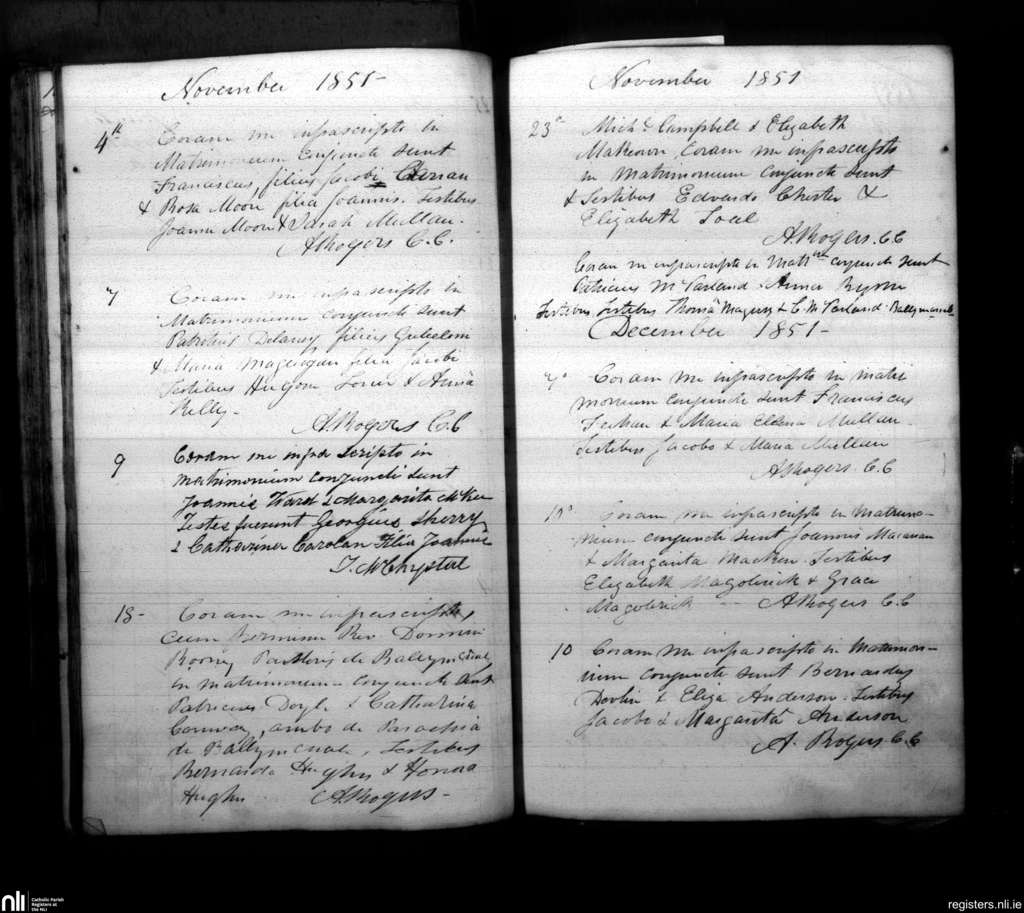 November 1851-
4th Coram me infrascripto in
Matrimonium conjuncti sunt
Franciscus filius Jacobi
& Rosa Moon filia Joannis. Testibus
Joanne Moon & Sarah Mullan.
ARogers C.C.
7 Coram me infrascripto in
Matrimonium conjuncti sunt
Patricius Delaney filius Gulielom
& Maria filia Jacobi
Testibus & Anna
Kelly-
ARogers C.C
9 Coram me infra scripto in
matrimonium conjuncti sunt
Joannis Ward & Margarita McKee
Testes fuerunt Georgius Sherry
& Catherina Carolan Filia Joannis
J. McChrystal
18- Coram me infrascripto,
cum Rev
Rooney de
in matrimonium conjuncti sunt
Patricius Doyle & Catharina
ambo de Parochia
de Testibus
Bernardo Hughes & Honora
Hughes ARogers-
November 1851
23 Michl Campbell & Elizabeth
McKeown Coram me infrascripto
in matrimonium conjuncti sunt
& Testibus Edvardo Chester &
Elizabeth
ARogers. C.C
Coram me infrascripto in conjuncti sunt
Patricius McParland & Anna Byrne
Testibus Testibus Thoma & C. McParland
December 1851-
7 Coram me infrascripto in matri
monium conjuncti sunt Franciscus
& Maria Ellena Mullan-
Testibus Jacobo & Maria Mullan
ARogers. C.C
Coram me infrascripto in matrimo-
nium conjuncti sunt Joannis
& Margarita Testibus
Elizabeth & Grace
ARogers C.C
10 Coram me infrascripto in matrimon-
nium conjuncti sunt Bernardus
Devlin & Eliza Anderson. Testibus
Jacobo & Margarita Anderson
A. Rogers. C.C
nli Catholic Parish
Registers at
the NLI
registers.nli.ie